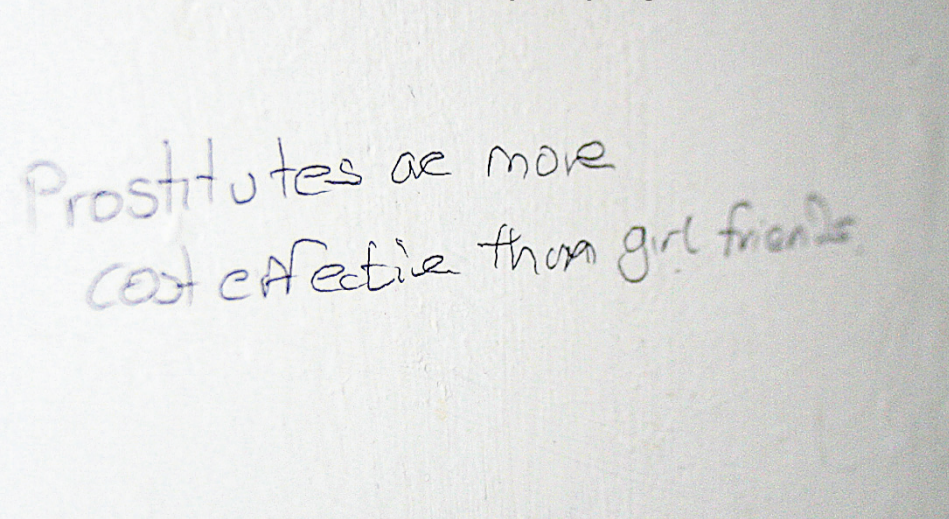 Prostitutes are more
cost effective than girl friends